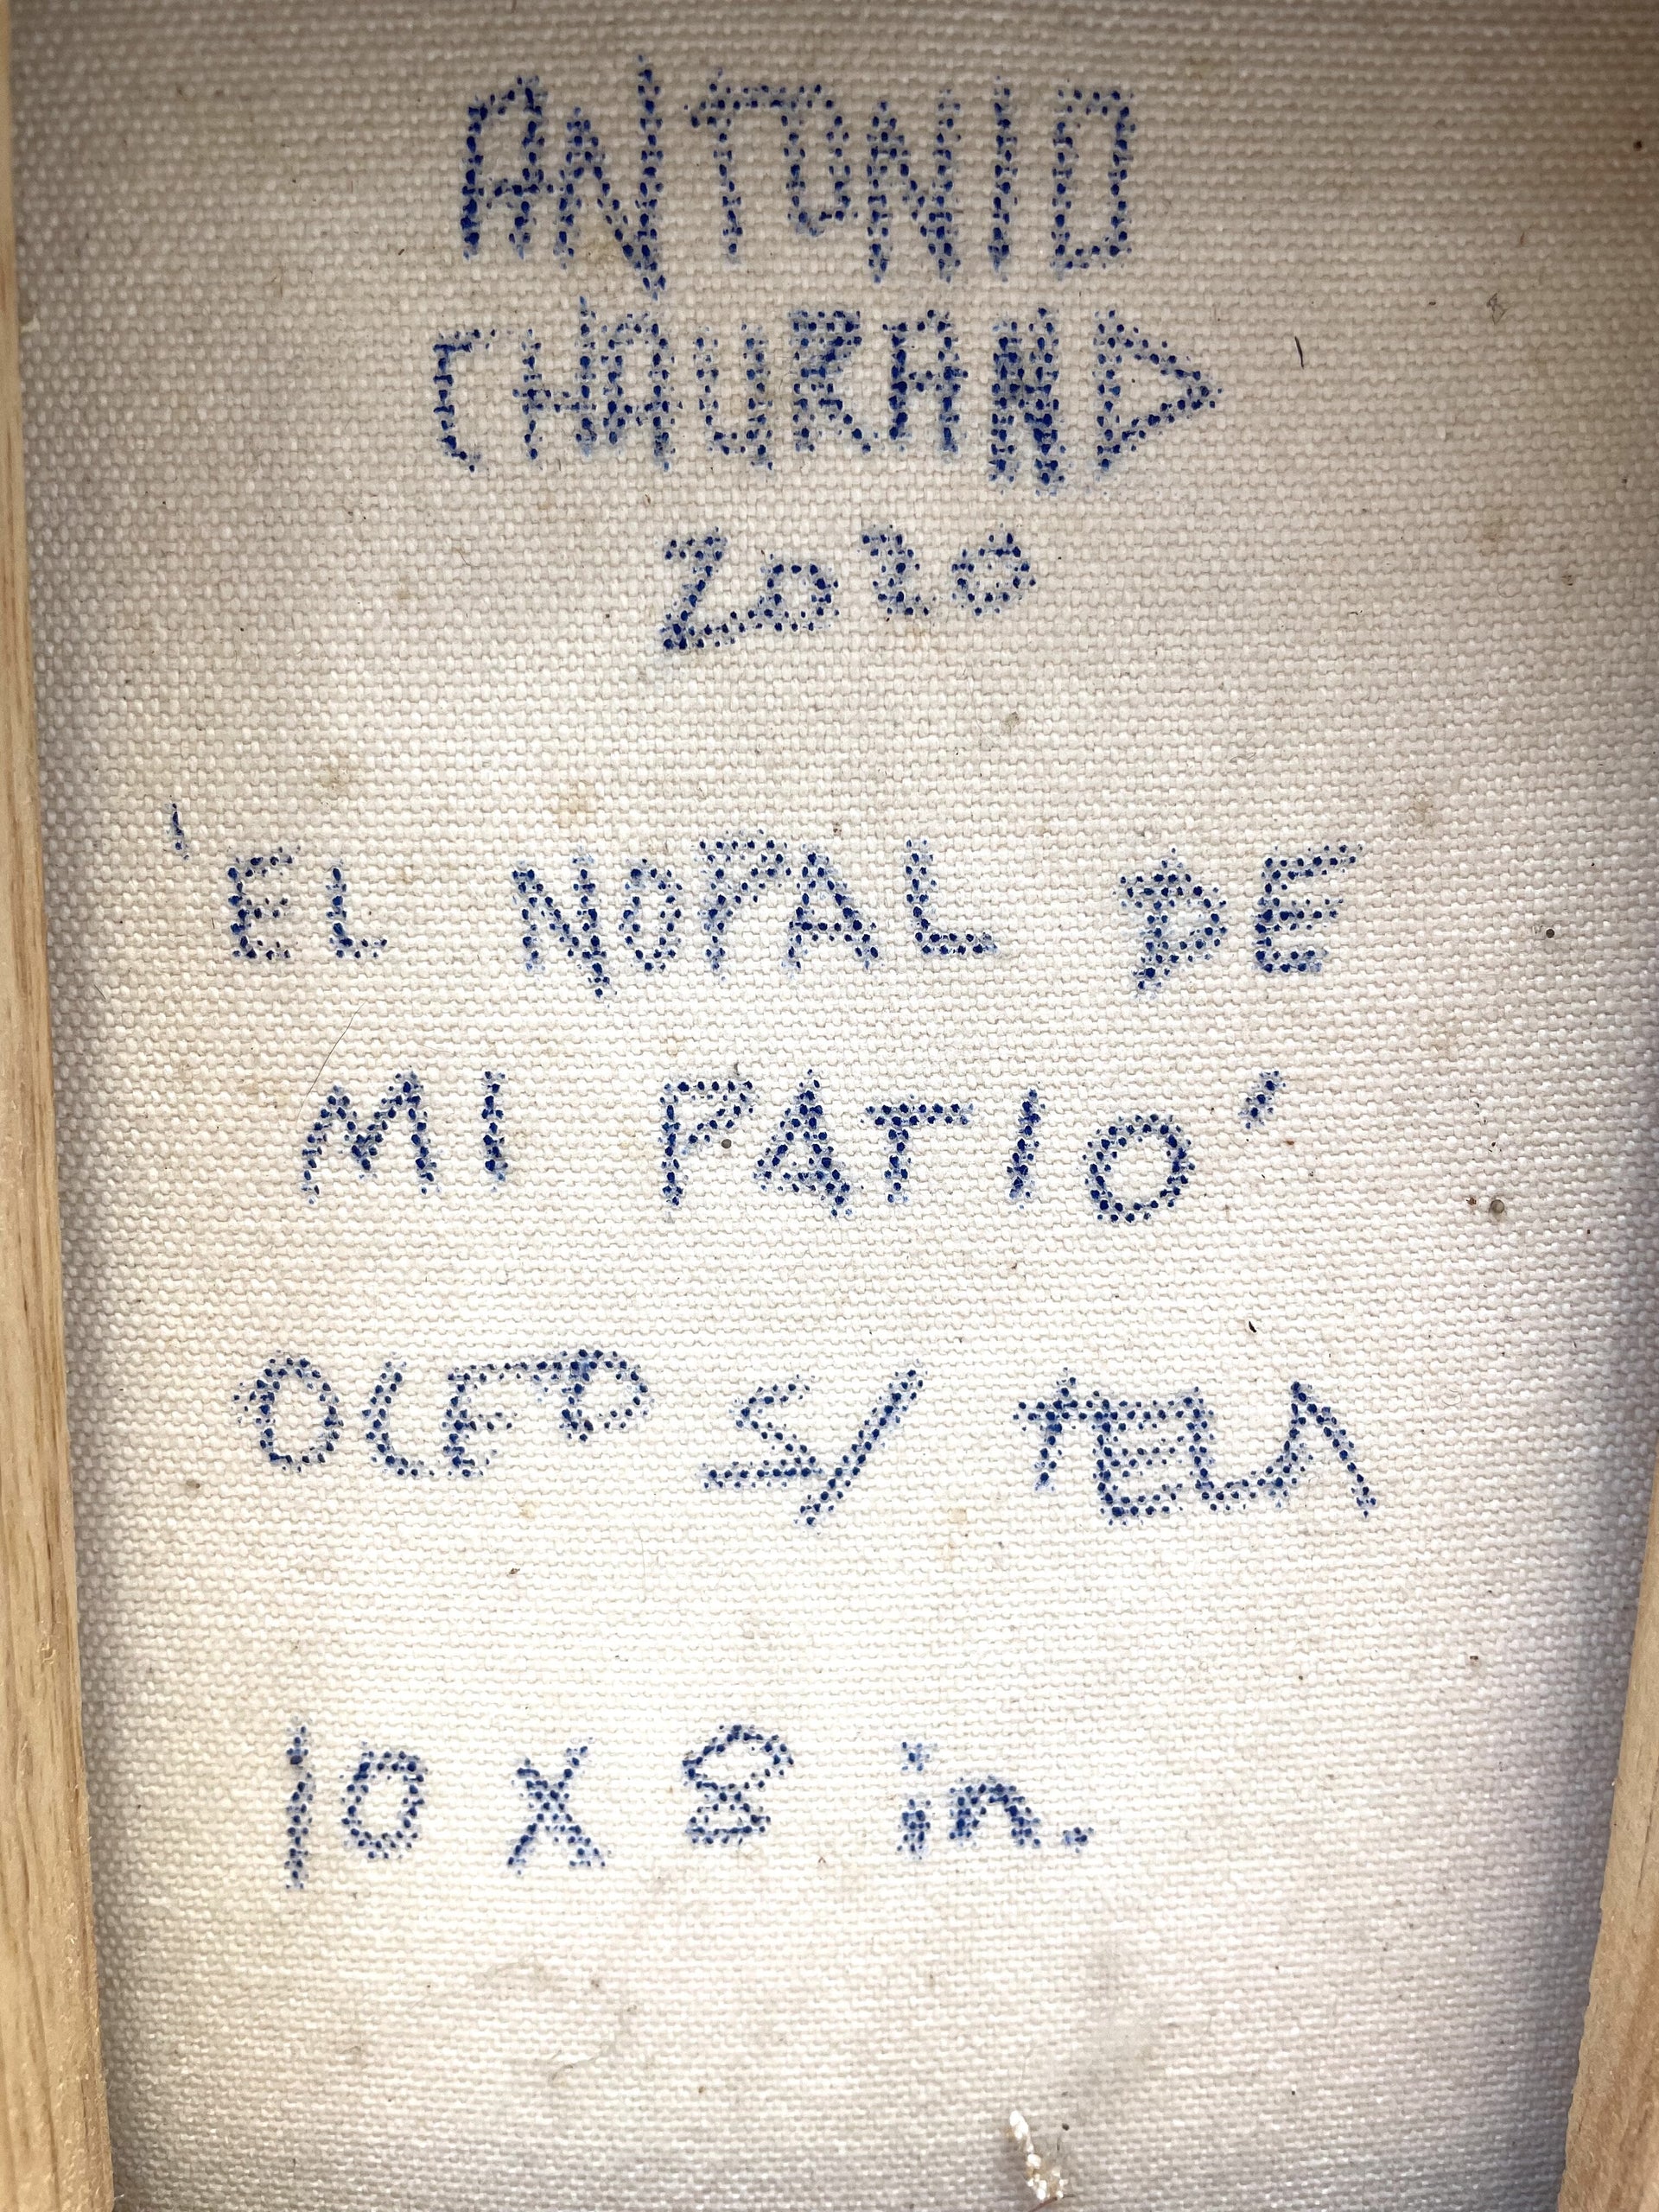 ANTONIO
CHAURAND
2020
'EL NOPAL DE
MI PATIO'
OLEO S/ TELA
10 X 8 in.